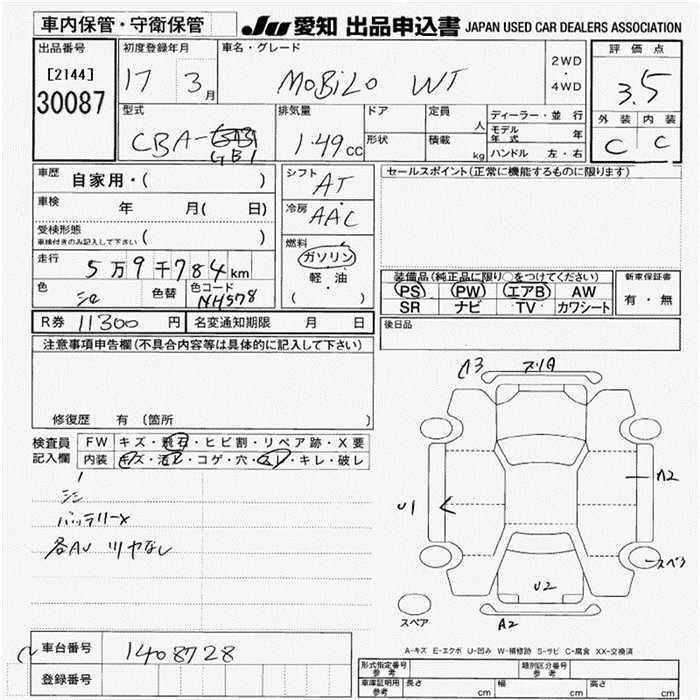 車内保管・守衛保管
JU 愛知 出品申込書 JAPAN USED CAR DEALERS ASSOCIATION
出品番号
[2144]
30087
初度登録年月
17 3月
車名・グレード
MOBiLO WT
2WD
・
4WD
評価点
3.5
外装 内装
C C
型式
CBA-
GB1
排気量
1.49cc
ドア
形状
定員
人
積載
kg
ディーラー・並行
モデル年式 年
ハンドル 左・右
車歴 自家用・( )
車検 年 月( 日)
受検形態
車検付きのみ記入して下さい ( )
走行 5万9千784km
色
色替
色コード
NH578
シフト
AT
冷房
AAC
燃料
ガソリン
軽・油
( )
セールスポイント(正常に機能するものに限ります)
装備品(純正品に限り○をつけてください)
PS PW エアB AW
SR ナビ TV カワシート
新車保証書
有・無
後日品
R券 11300円 名変通知期限 月 日
注意事項申告欄(不具合内容等は具体的に記入して下さい)
修復歴 有 (箇所 )
検査員
記入欄
FW キズ・飛石・ヒビ割・リペア跡・X要
内装 キズ・汚レ・コゲ・穴・スレ・キレ・破レ
シミ
バッテリーx
各AU ツヤなし
A3 スリ傷
U1
A2
スペク
U2
A2
スペア
A-キズ E-エクボ U-凹み W-補修跡 S-サビ C-腐食 XX-交換済
車台番号 1408728
登録番号
形式指定番号
参考
類別区分番号
参考
車庫証明用
参考
長さ cm 幅 cm 高さ cm